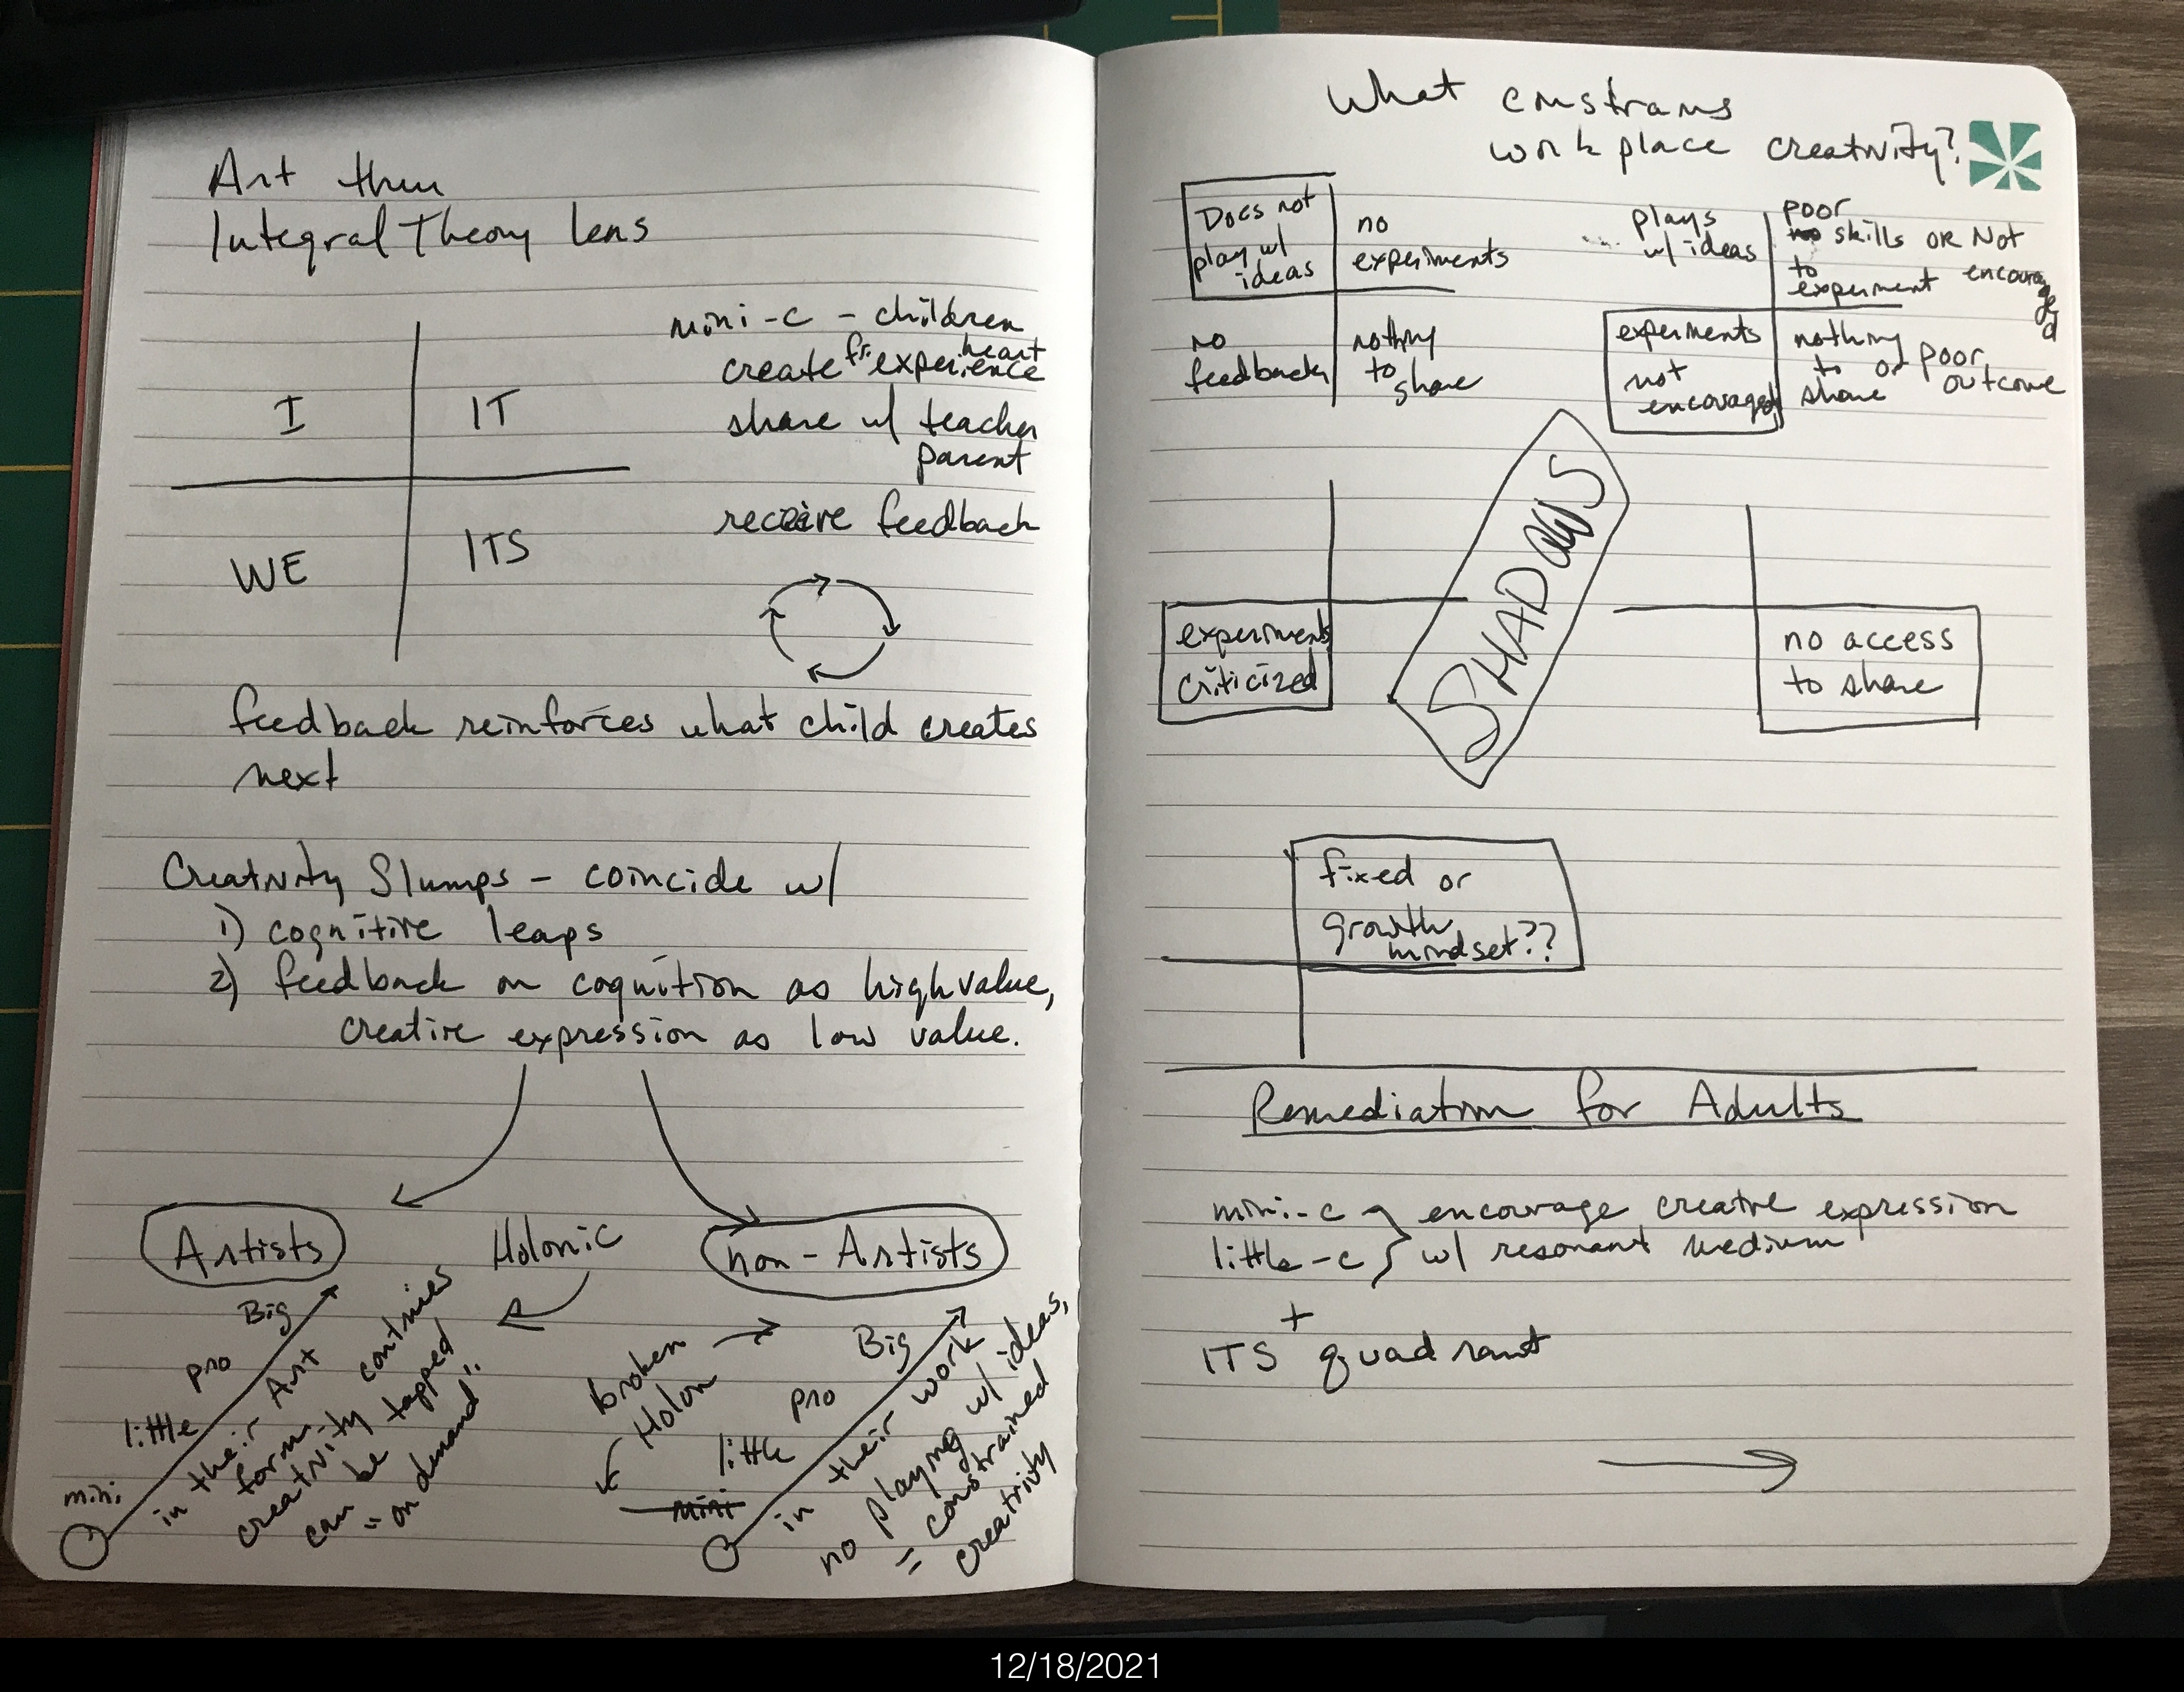 Art thru
Integral Theory lens
I
IT
WE
ITS
mini-c - children
create fr. heart experience
share w/ teacher
parent
receive feedback
feedback reinforces what child creates
next
Creativity Slumps - coincide w/
1) cognitive leaps
2) feedback on cognition as high value,
creative expression as low value.
Artists
Holonic
non-Artists
mini
little
pro
Big
in their Art
form
continues
creativity
can be tapped
"on demand"
broken
Holon
mini
little
pro
Big
in their work
no playing w/ ideas,
= constrained
creativity
What constrains
workplace creativity?
Does not
play w/
ideas
no
experiments
no
feedback
nothing
to
share
plays
w/ ideas
poor
no skills OR Not
to encouraged
experiment
experiments
not
encouraged
nothing
to or poor
share outcome
SHADOWS
experiments
criticized
no access
to share
fixed or
growth
mindset??
Remediation for Adults
mini-c } encourage creative expression
little-c } w/ resonant medium
+
ITS quadrant
12/18/2021